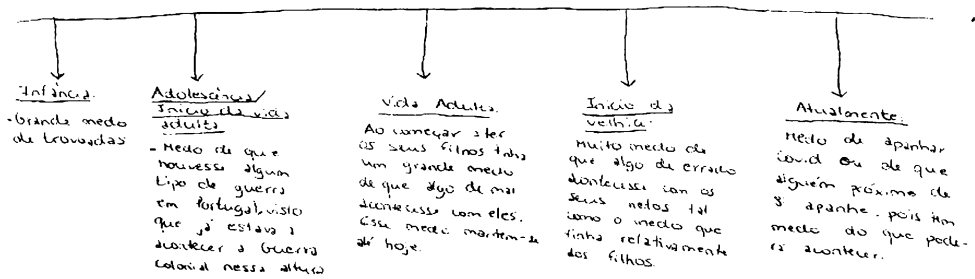 Infância.
- Grande medo
de trovoadas
Adolescência/
Início da vida
adulta
- Medo de que
houvesse algum
tipo de guerra
em Portugal, visto
que já estava a
acontecer a Guerra
Colonial nessa altura
Vida Adulta.
Ao começar a ter
os seus filhos tinha
um grande medo
de que algo de mal
acontecesse com eles.
Esse medo mantem-se
até hoje.
Início da
velhice.
Muito medo de
que algo de errado
acontecesse com os
seus netos tal
como o medo que
tinha relativamente
aos filhos.
Atualmente:
Medo de apanhar
covid ou de que
alguém próximo de
si apanhe, pois tem
medo do que pode-
rá acontecer.